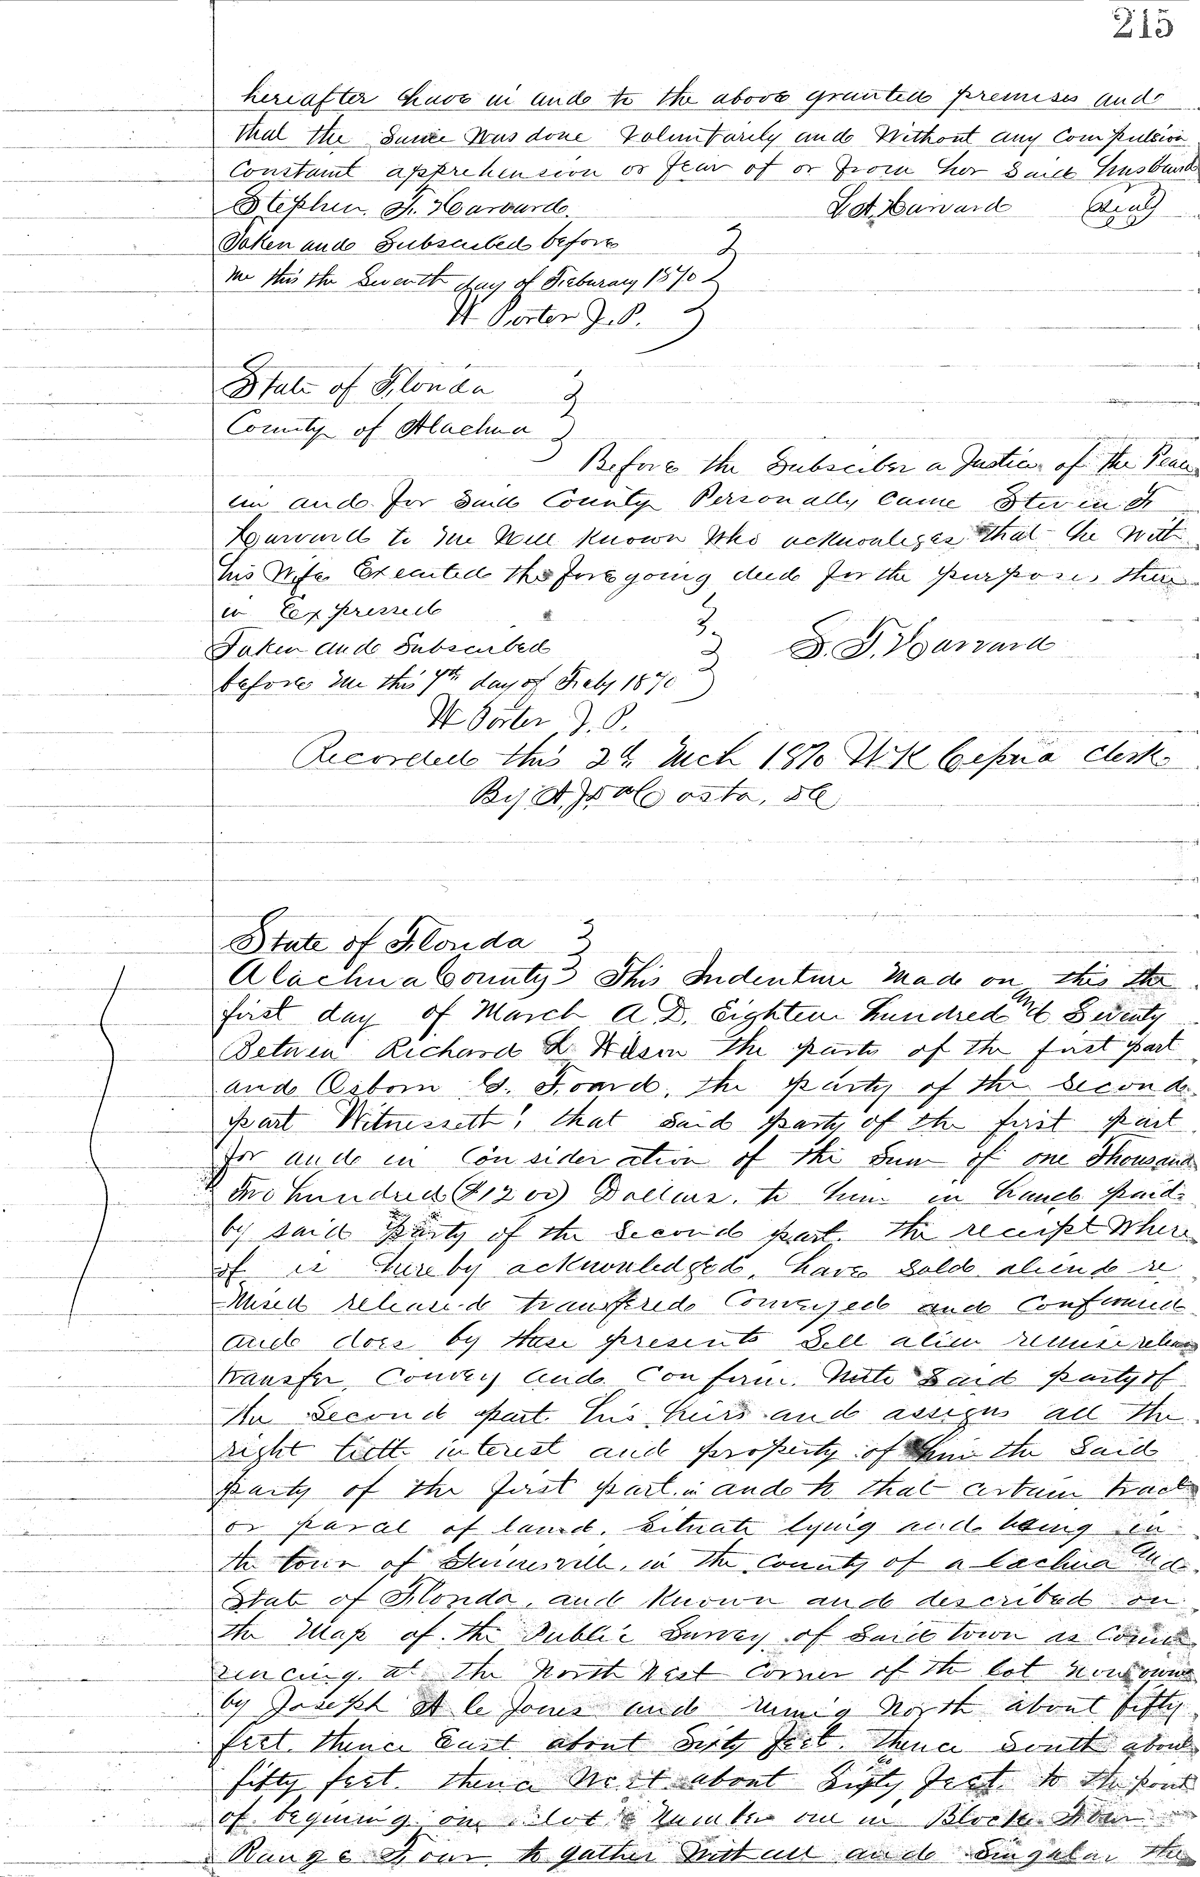 215
hereafter have in and to the above granted premises and
that the same was done voluntarily and without any compulsion
Constaint apprehension or fear of or from her said husband
Stephen. F. Harvard. L A. Harvard (Seal)
Taken and Subscribed before
me this the Seventh day of Feburary 1870
W Porter J. P.
State of Florida
County of Alachua
Before the Subsciber a Justice of the Peace
in and for said County Personally came F
Harvard to me Well Known Who that he with
his Wife Executed the foregoing deed for the purposes there
in Expressed
Taken and Subscribed S. F. Harvard
before me this 7th day of Feby 1870
W Porter J. P.
Recorded this Mch 1870 W K Cessna Clerk
By A. J. DaCosta, DC
State of Florida
Alachua County This Indenture Made on this the
first day of March A. D. Eighteen hundred and Seventy
Between Richard L Wilson the party of the first part
and Osborn G. Foard, the party of the second
part Witnesseth! that said party of the first part
for and in Consideration of the Sum of one Thousand
Two hundred ($1200) Dollars. to him in hand paid
by said Party of the second part. the receipt Where
of is hereby acknowledged, have sold aliend re
mised released transfered Conveyed and Confirmed
and does by these presents Sell alien remise release
transfer, Convey and Confirm. Unto Said party of
the Second part his heirs and assigns all the
right title interest and property of him the Said
party of the first part. in and to that certain tract
or parcel of land. Situate lying and being in
the town of Gainesville, in the County of alachua and
State of Florida, and Known and described on
the Map of the Public Survey of said town as Comm
encing at the North West Corner of the lot now owned
by Joseph A C Jones and runing North about fifty
feet. thence East about Sixty feet. thence South about
fifty feet. thence West about Sixty feet to the point
of begining on lot Number one in Block Four
Range Four, to gather with all and Singular the